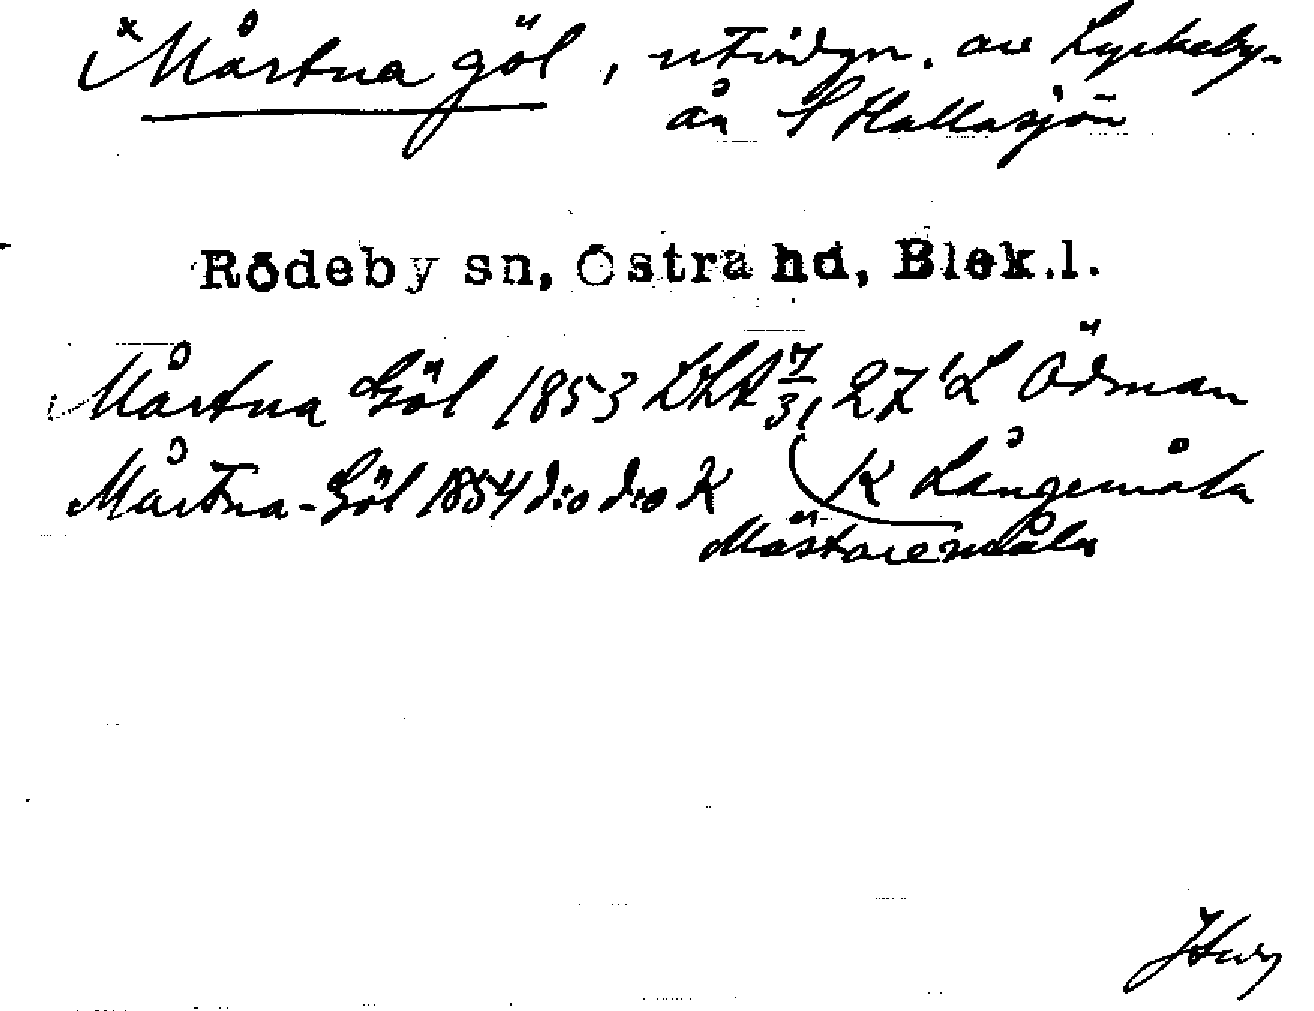 ˣMårtna göl, utvidgn. av Lyckeby-
ån S Hallasjön
Rödeby sn, Östra hd, Blek.l.
Mårtna Göl 1853 LSA 7/31, 27 'L Ödman
Mårtna-Göl 1854 d:o d:o K K Långemåla
Mästaremåla